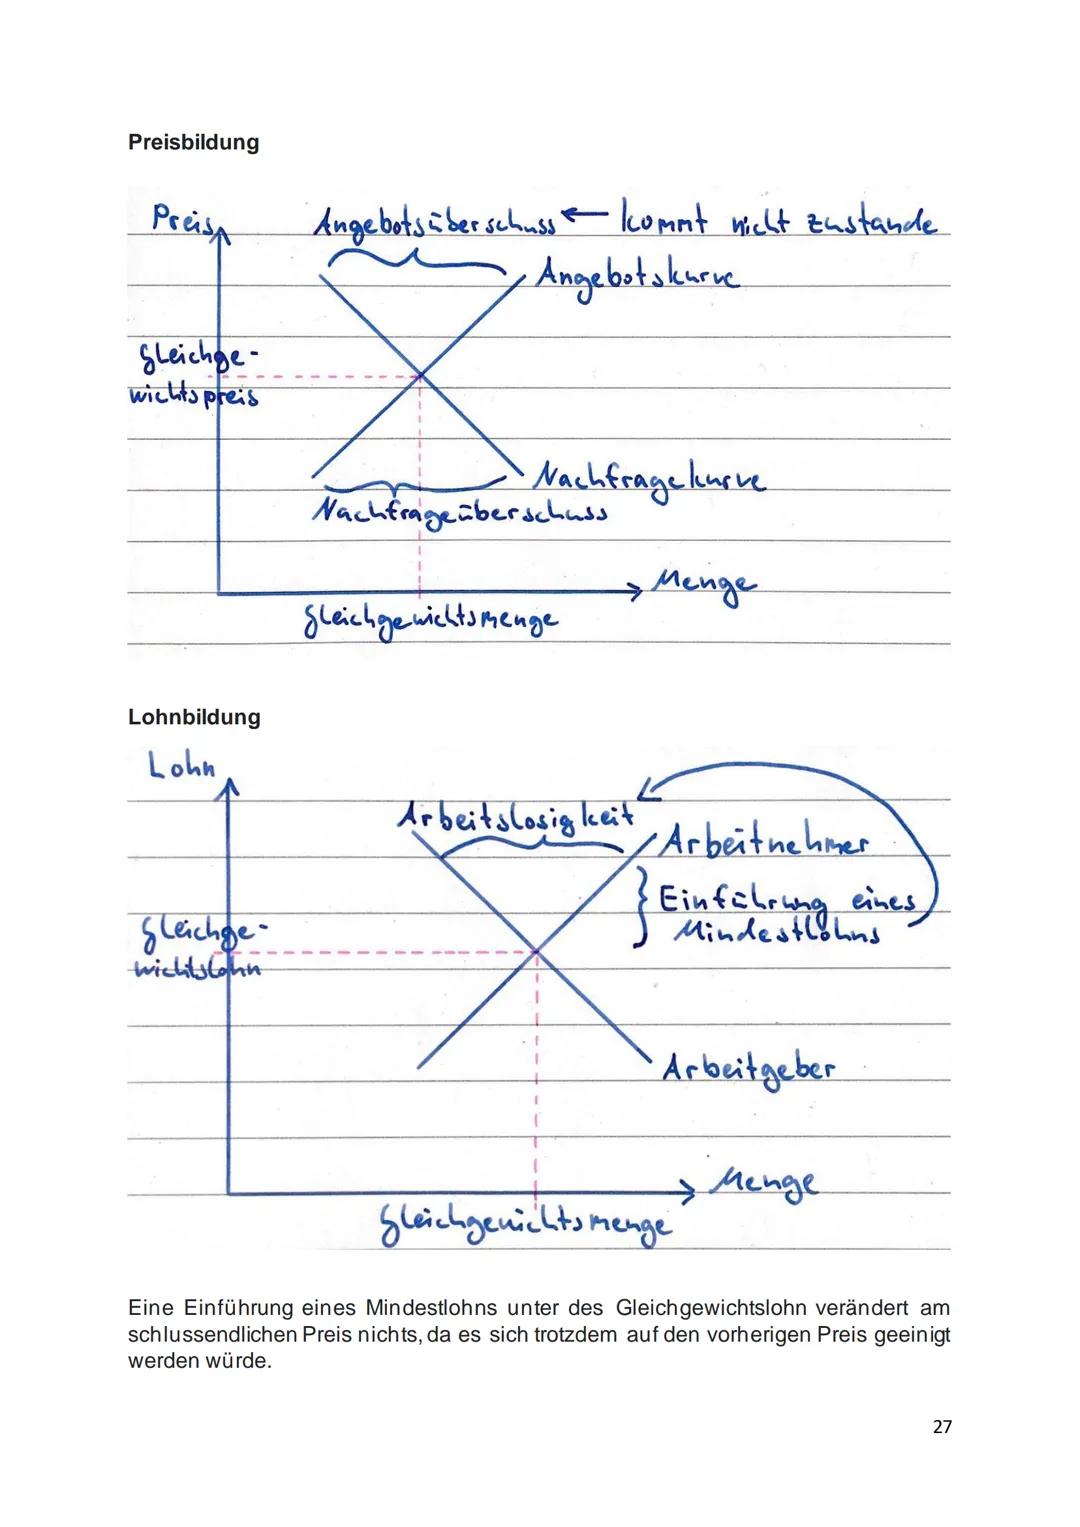 Preisbildung
Preis
Angebotsüberschuss ← kommt nicht zustande
Angebotskurve
Gleichge-
wichtspreis
Nachfragekurve
Nachfrageüberschuss
Menge
Gleichgewichtsmenge
Lohnbildung
Lohn
Arbeitslosigkeit
Arbeitnehmer
Einführung eines
Mindestlohns
Gleichge-
wichtslohn
Arbeitgeber
Menge
Gleichgewichtsmenge
Eine Einführung eines Mindestlohns unter des Gleichgewichtslohn verändert am
schlussendlichen Preis nichts, da es sich trotzdem auf den vorherigen Preis geeinigt
werden würde.
27